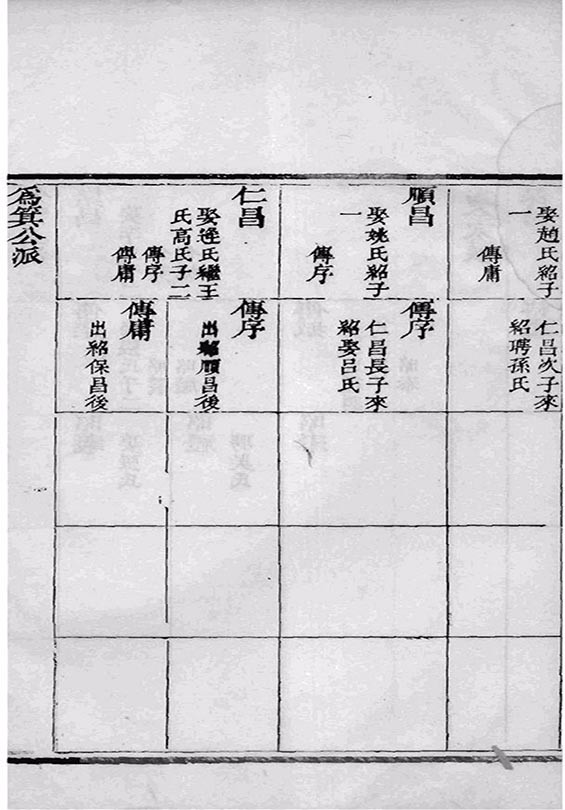 娶趙氏紹子
一
傳庸
仁昌次子來
紹聘孫氏
順昌
娶姚氏紹子
一
傳序
傳序
仁昌長子來
紹娶呂氏
仁昌
娶逄氏繼王
氏高氏子二
傳序
傳庸
傳序
出紹順昌後
傳庸
出紹保昌後
爲箕公派